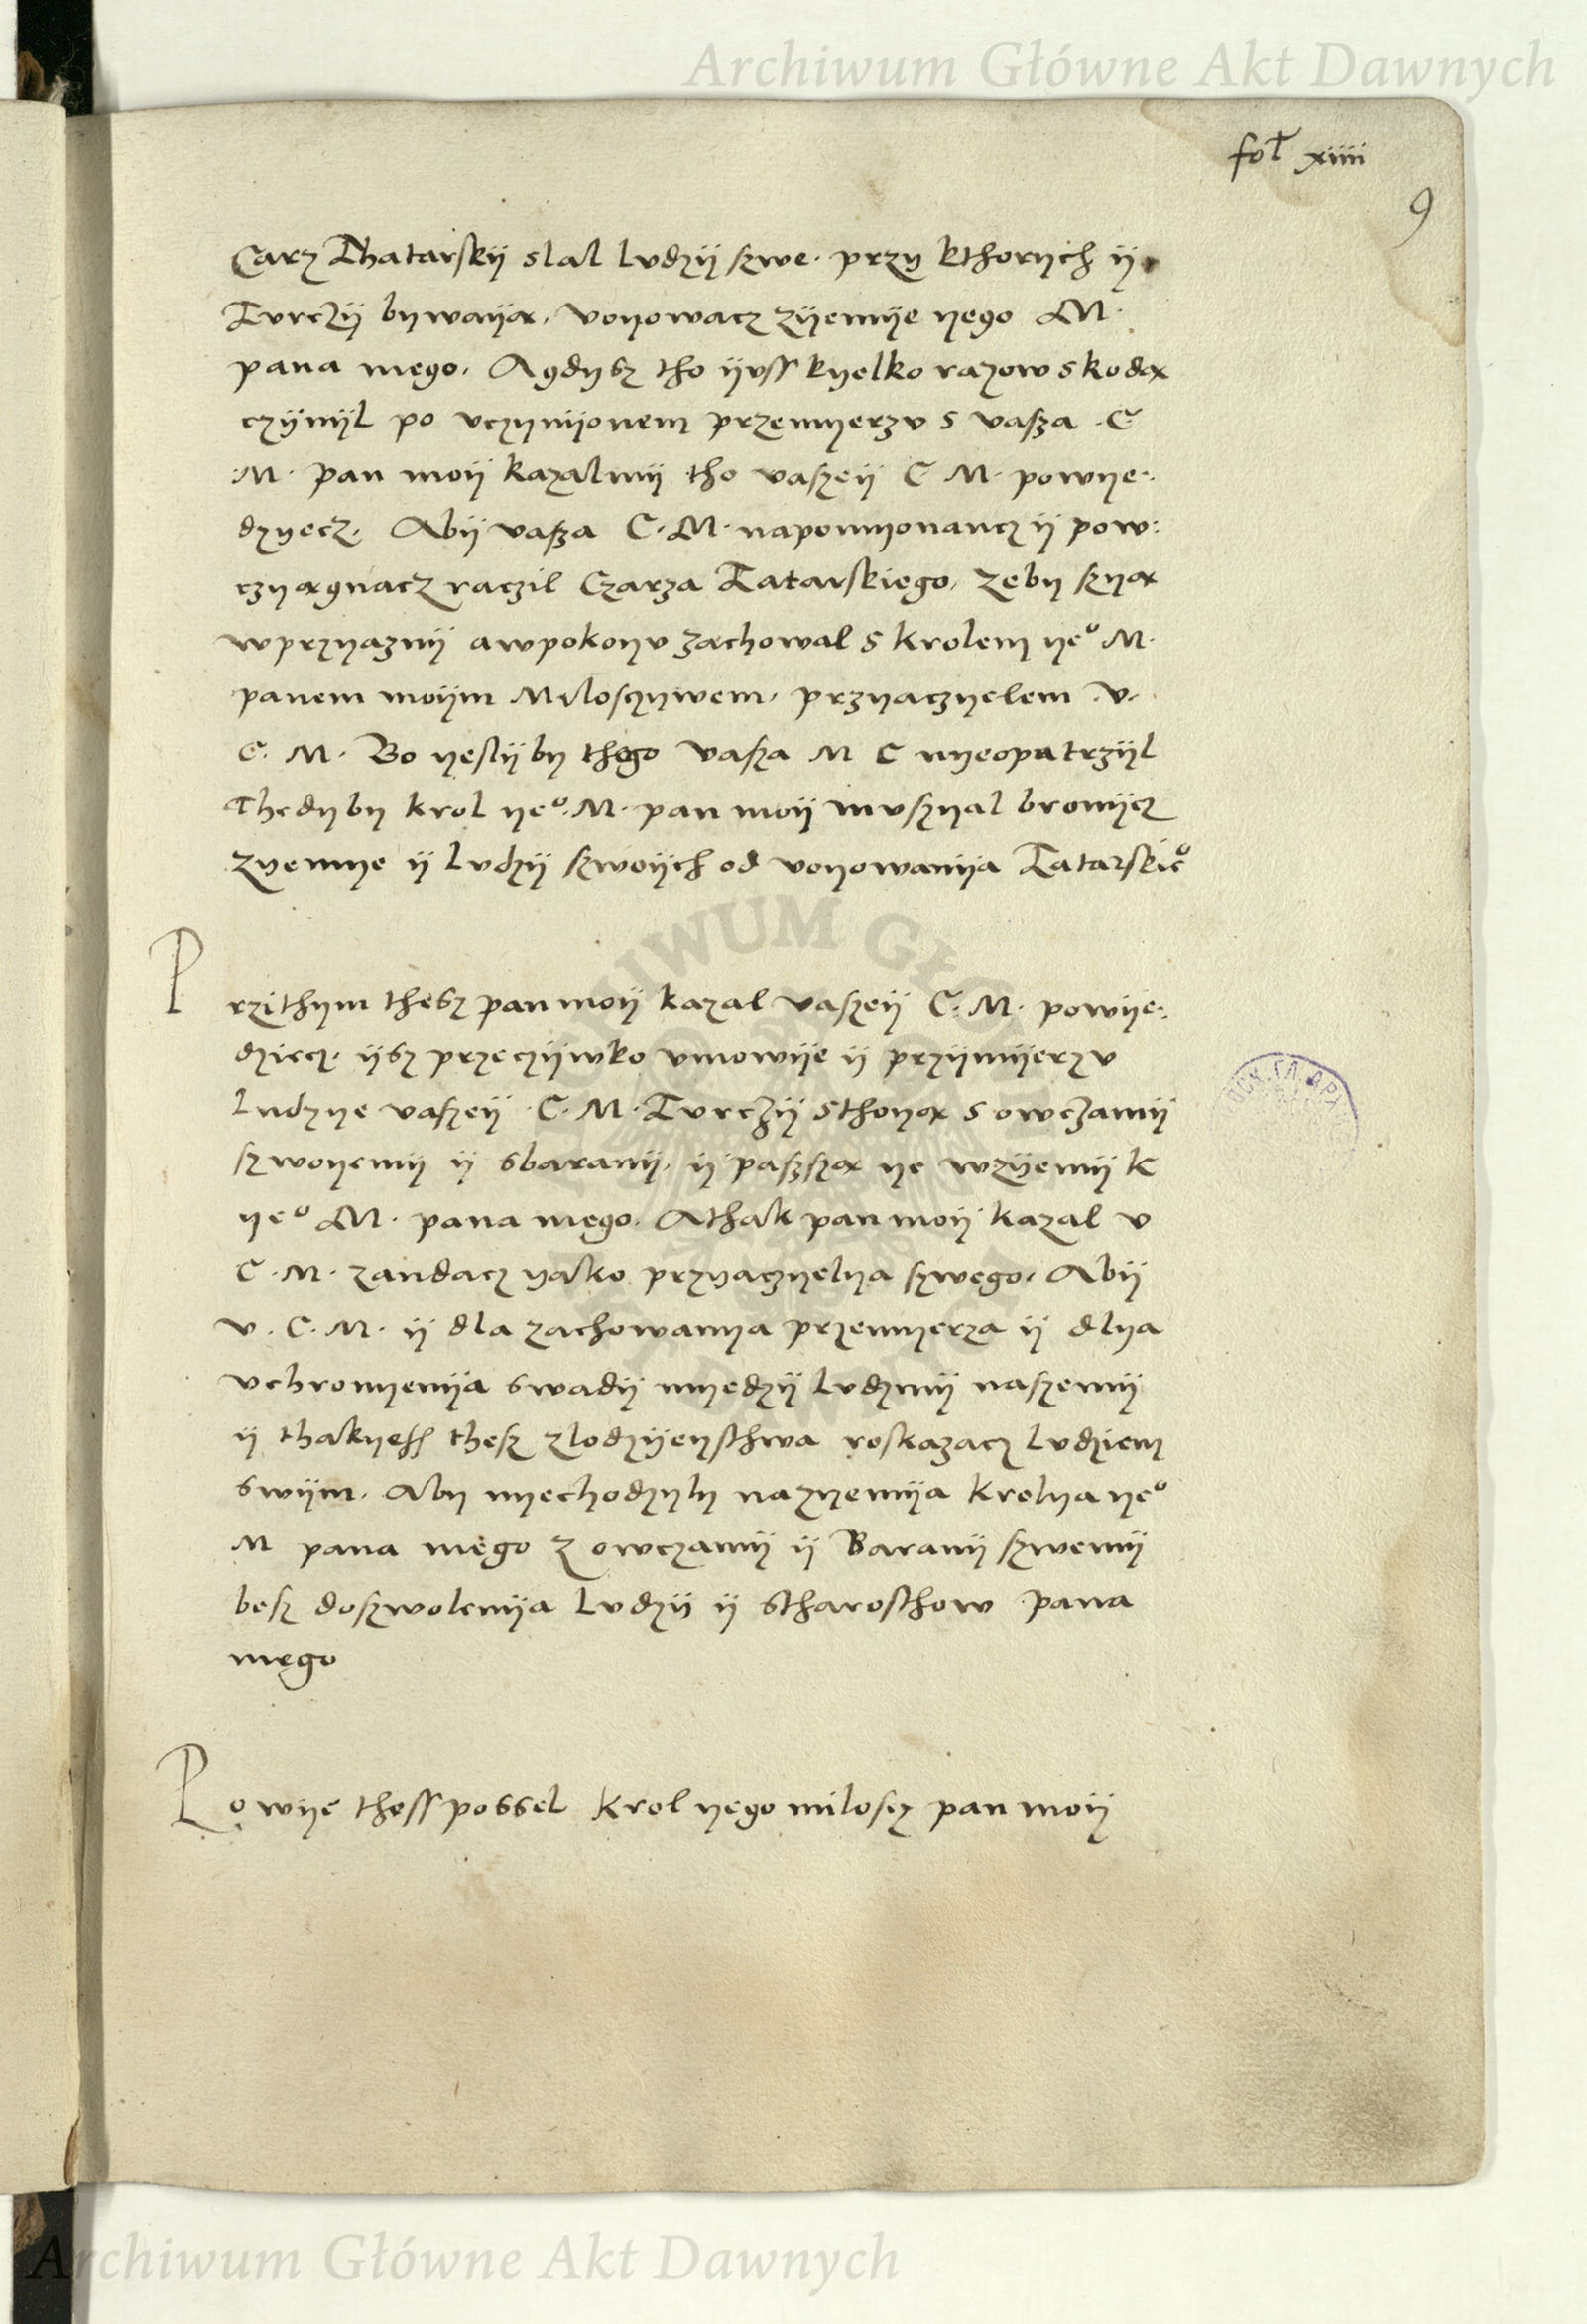 Archiwum Główne Akt Dawnych
fol xiiii
9
Carz Thatarskÿ slal lvdzÿ szwe. przy kthorÿch ÿ
Tvrczÿ bywaiÿa. voyowacz zÿemÿe yego M.
pana mego. A gdysz tho ÿvss kyelko razow skodą
czÿnÿl po vczynÿonem przemyerzv s vasza .C.
.M. pan moÿ kazal mÿ tho vaszeÿ C M. powye.
dzyecz. Abÿ vasza C.M. napomyonancz ÿ pow:
czyągnacz raczil Czarza Tatarskiego, zeby szyą
w przyaznÿ a w pokoyv zachowal s krolem ye° M.
panem moÿm Milosczywem, przyaczyelem v.
C. M. Bo yeslÿ by thego vasza M C nyeopatrzÿl
Thedy by krol ye°. M. pan moÿ mvszyal bronÿcz
zyemye ÿ lvdzÿ szwoÿch od voyowanÿa Tatarskie°
Przithym thesz pan moÿ kazal vaszeÿ C. M. powÿe.
dziecz. ÿsz przeczÿwko vmowÿe ÿ przÿmÿerzv
ludzye vaszeÿ C. M. Tvrczÿ sthoyą s owczamÿ
szwoyemÿ ÿ sbaranÿ. ÿ paszszą ye w zÿemÿ K
ye° M. pana mego. A thak pan moÿ kazal v
C. M. zandacz yako przyaczyelya szwego, Abÿ
v. C. M. ÿ dla zachowanya przemyerza ÿ dlya
vchronyenÿa swadÿ myedzÿ lvdzmÿ naszemÿ
ÿ thakyess thesz zlodzÿeysthwa roskazacz lvdziem
swÿm. Aby nyechodzyly na zyemÿa krolya ye°
M pana mego z owczamÿ ÿ Baranÿ szwemÿ
besz doszwolenÿa lvdzÿ ÿ stharosthow pana
mego
Powye thess possel krol yego miloscz pan moÿ
Archiwum Główne Akt Dawnych